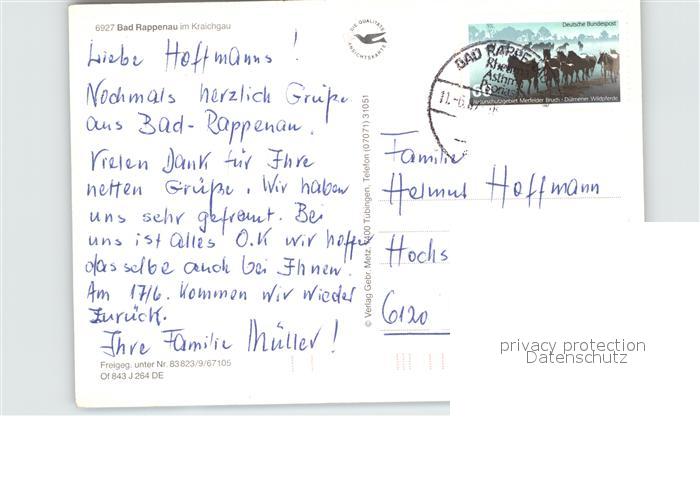 6927 Bad Rappenau im Kraichgau
Liebe Hoffmanns !
Nochmals herzlich Grüße
aus Bad-Rappenau.
Vielen Dank für Ihre
netten Grüße. Wir haben
uns sehr gefreut. Bei
uns ist alles O.K wir hoffen
dasselbe auch bei Ihnen.
Am 17/6. kommen wir wieder
Zurück.
Ihre Familie Müller!
Freigeg. unter Nr. 83823/9/67105
Of 843 J 264 DE
© Verlag Gebr. Metz, 7400 Tübingen, Telefon (07071) 31051
DIE QUALITÄTS
ANSICHTSKARTE
Deutsche Bundespost
Naturschutzgebiet Merfelder Bruch · Dülmener Wildpferde
BAD RAPPE
Rheuma
Asthma
Psorias
11.-6.
Familie
Helmut Hoffmann
Hochs
6120
privacy protection
Datenschutz